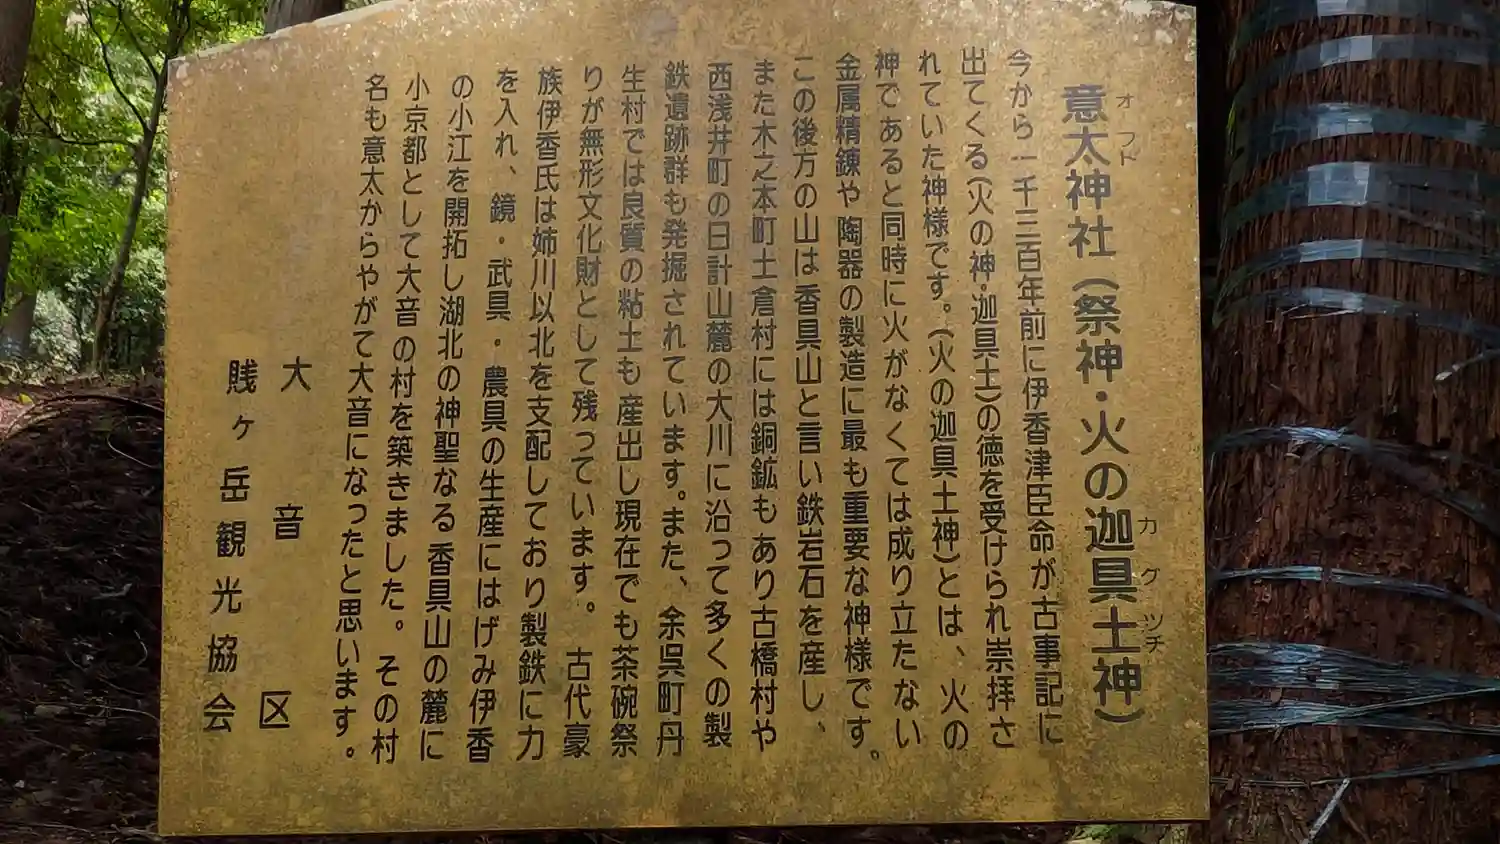 意太神社（祭神・火の迦具土神）
オフト
カグツチ
今から一千三百年前に伊香津臣命が古事記に
出てくる（火の神・迦具土）の徳を受けられ崇拝さ
れていた神様です。（火の迦具土神）とは、火の
神であると同時に火がなくては成り立たない
金属精錬や陶器の製造に最も重要な神様です。
この後方の山は香具山と言い鉄岩石を産し、
また木之本町土倉村には銅鉱もあり古橋村や
西浅井町の日計山麓の大川に沿って多くの製
鉄遺跡群も発掘されています。また、余呉町丹
生村では良質の粘土も産出し現在でも茶碗祭
りが無形文化財として残っています。古代豪
族伊香氏は姉川以北を支配しており製鉄に力
を入れ、鏡・武具・農具の生産にはげみ伊香
の小江を開拓し湖北の神聖なる香具山の麓に
小京都として大音の村を築きました。その村
名も意太からやがて大音になったと思います。
大音区
賎ヶ岳観光協会